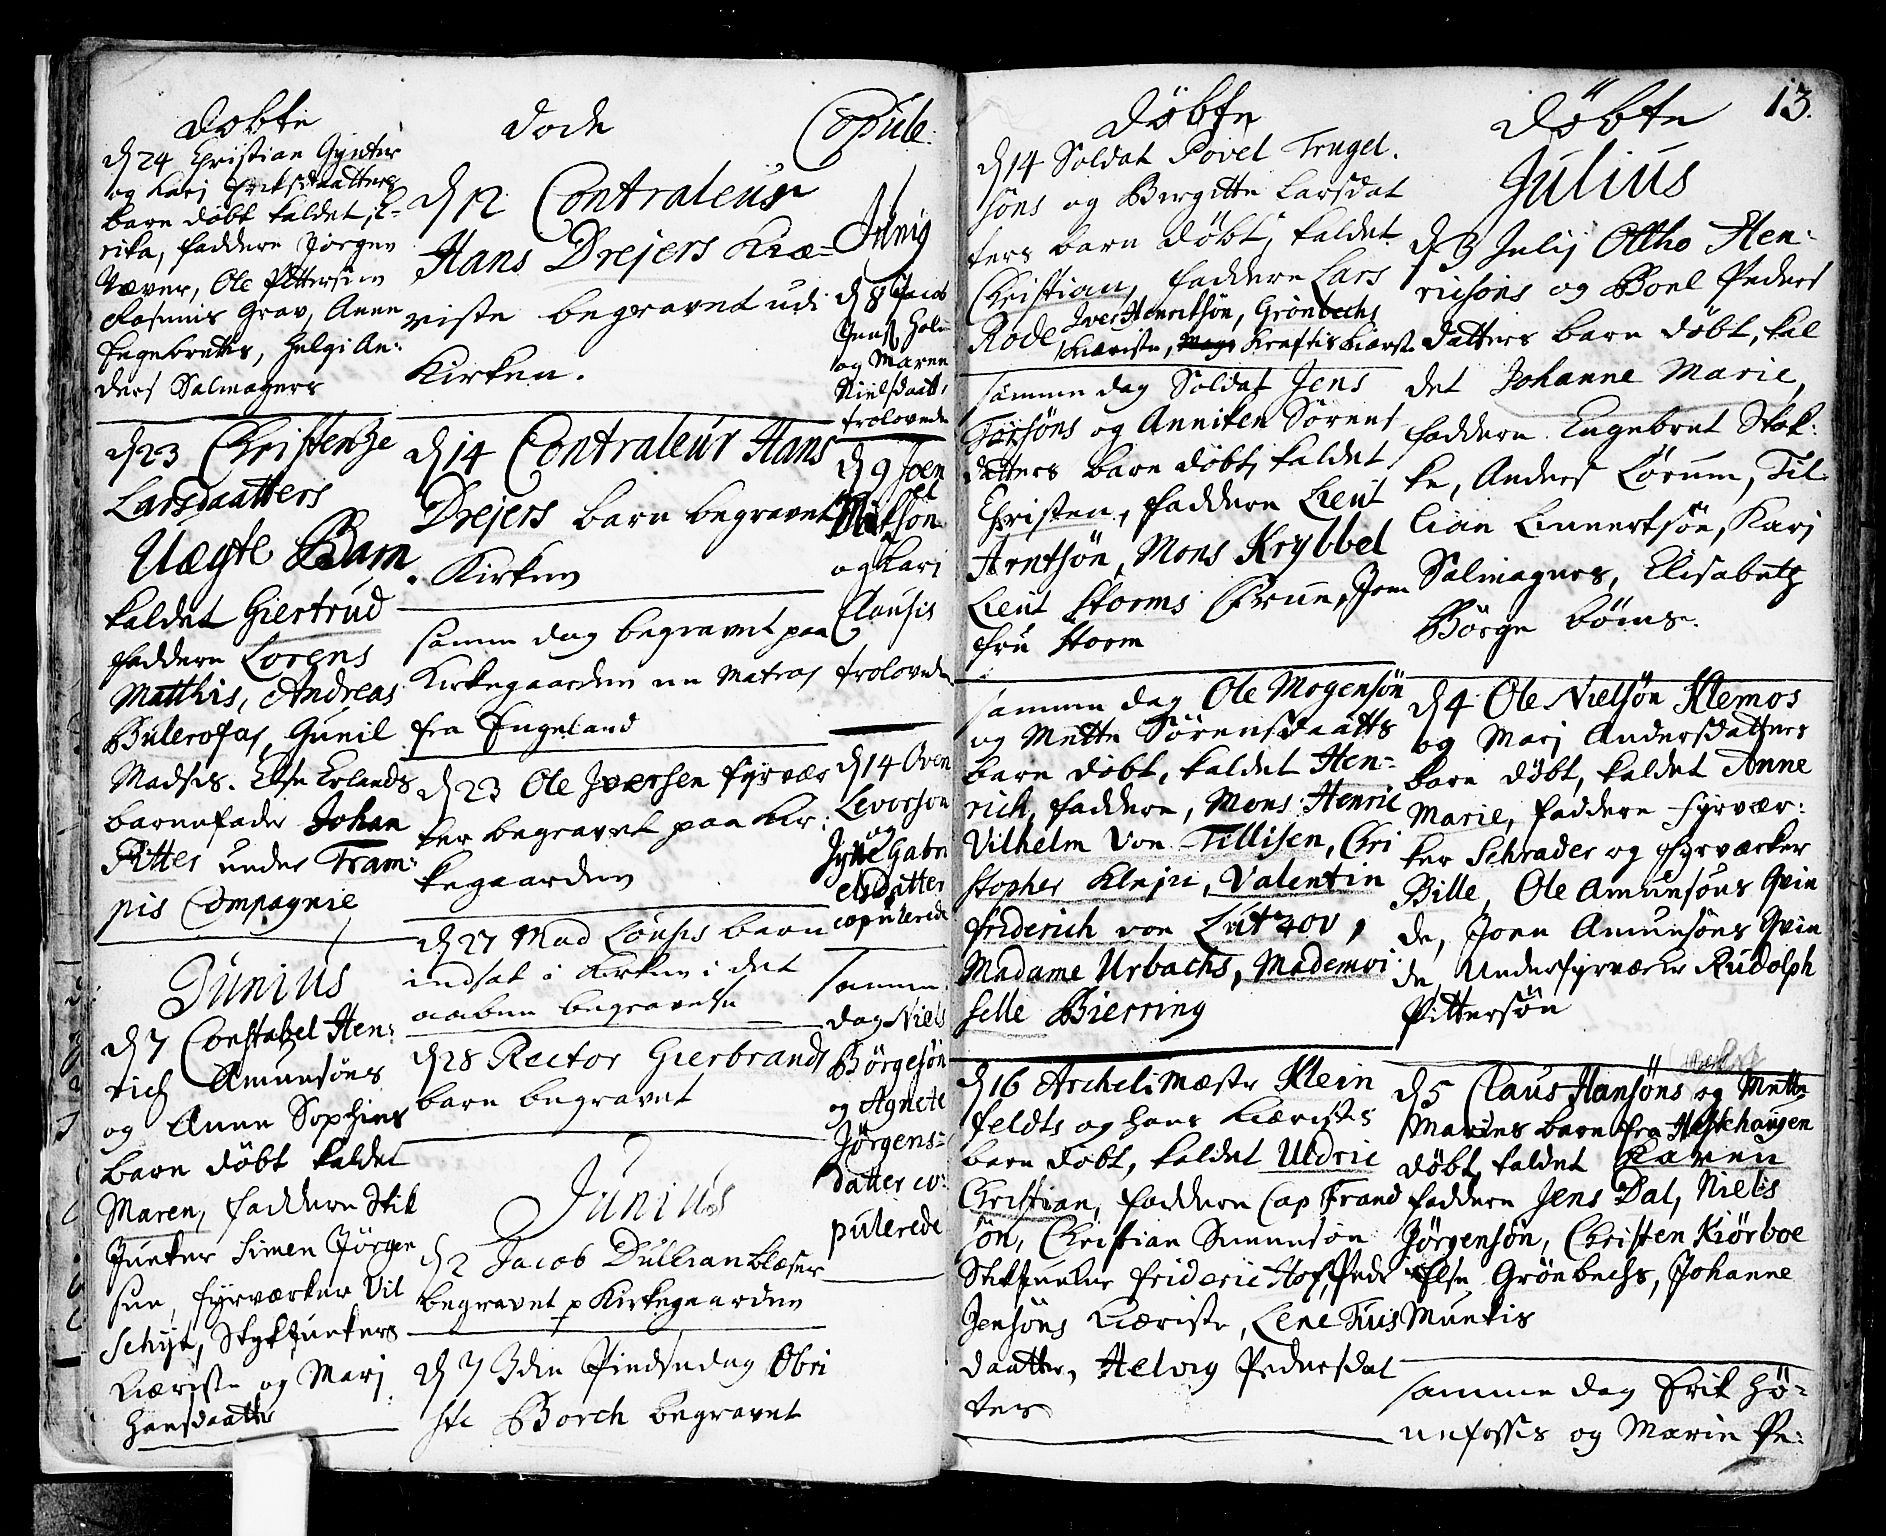 Døbte
d 24 Christian Gynter
og Karj Eriksdaatters
barn døbt kaldet, E-
rika, faddere Jørgen
Væver, Ole Pittersen
Rasmus Grav, Anne
Engebretes, Helgi An-
ders Salmagers
d 23 Christentze
Larsdaatters
Uægte Barn
kaldet Giertrud
faddere Lorens
Matthis, Andreas
Bulerofas, Gunil
Madsis. Else Erlands
barnefader Johan
Pitter under Tram-
pis Compagnie
Junius
d 7 Constabel Hen-
rich Amunsøns
og Anne Sophies
barn døbt kaldet
Maren, faddere Stik
Junker Simen Jørgen
sen, fyrværker Vil
Schyt, Stykjunkers
Kæriste og Marj
Hansdaatter
døde
d 12 Contraleur
Hans Drejers Kiæ-
riste begravet udi
Kirken.
d 14 Contraleur Hans
Drejers barn begravet
i Kirken
samme dag begravet paa
Kirkegaarden en Matros
fra Engeland
d 23 Ole Iversen fyrvær
ker begravet paa Kir-
kegaarden
d 27 Mad Lousis barn
indsat i Kirken i det
aaben begravelse
d 28 Rector Gierbrands
barn begravet
Junius
d 2 Jacob Dullian blæser
begravet p Kirkegaarden
d 7 3die Pindsedag Obri
ste Borch begravet
Copule.
Junij
d 8 Jacob
Jens Holm
og Maren
Nielsdaatt.
trolovede
d 9 Joen
Nilsøn
og Kari
Clausis
trolovede
d 14 Oven
Levorson
og
Jytte Gabri
elsdatter
copulerede
samme
dag Niels
Børgesøn
og Agnete
Jørgens-
datter co-
pulerede
Døbte
d 14 Soldat Povel Trugel.
søns og Birgitte Larsdat
ters barn døbt, kaldet
Christian, faddere Lars
Rode, Iver Henriksøn, Grønbechs
Kiæriste, Kraftis Kiærste
samme dag Soldat Jens
Torsøns og Anniken Sørens
datters barn døbt, kaldet
Christen, faddere Lieut
Arntsøn, Mons Krybbel
Lieut Storms Frue, Jom
fru Storm
samme dag Ole Mogensøn
og Mette Sørensdaatts
barn døbt, kaldet Hen-
rich, faddere, Mons: Henric
Vilhelm Von Tillisen, Chri
stopher Klejn, Valentin
friderich von Lutzov,
Madame Urbachs, Mademoi
selle Bierring
d 16 Archelimæstr Klein
feldts og hans Kiæristes
barn døbt, kaldet Uldric
Christian, faddere Cap Frand
søn, Christian Simensøn
Stikjunker frideric Hof, Peder
Jensøns Kiæriste, Lene Tius
daatter, Helvig Pedersdat
ter
Døbte
13.
Julius
d 3 Julij Ottho Hen-
ricsøns og Boel Peders
datters barn døbt, kal
det Johanne Marie,
faddere Engebret Stok-
ke, Anders Lørum, Til-
lian Linnertsøn, Karj
Salmagers, Elisabetz
Børge bøms.
d 4 Ole Nielsøn Klemos
og Marj Andersdatters
barn døbt, kaldet Anne
Marie, faddere fyrvær-
ker Schrader og fyrværker
Bille, Ole Amunsøns Qvin
de, Joen Amunsøns Qvin
de, Underfyrværker Rudolph
Pittersøn
d 5 Claus Hansøns og Mette
Maries barn fra Hestehaugen
døbt kaldet Karen
faddere Jens Dal, Niels
Jørgensøn, Christen Kiørboe
Else Grønbechs, Johanne
Muntis
samme dag Erik Hø-
nefossis og Marie Pe-